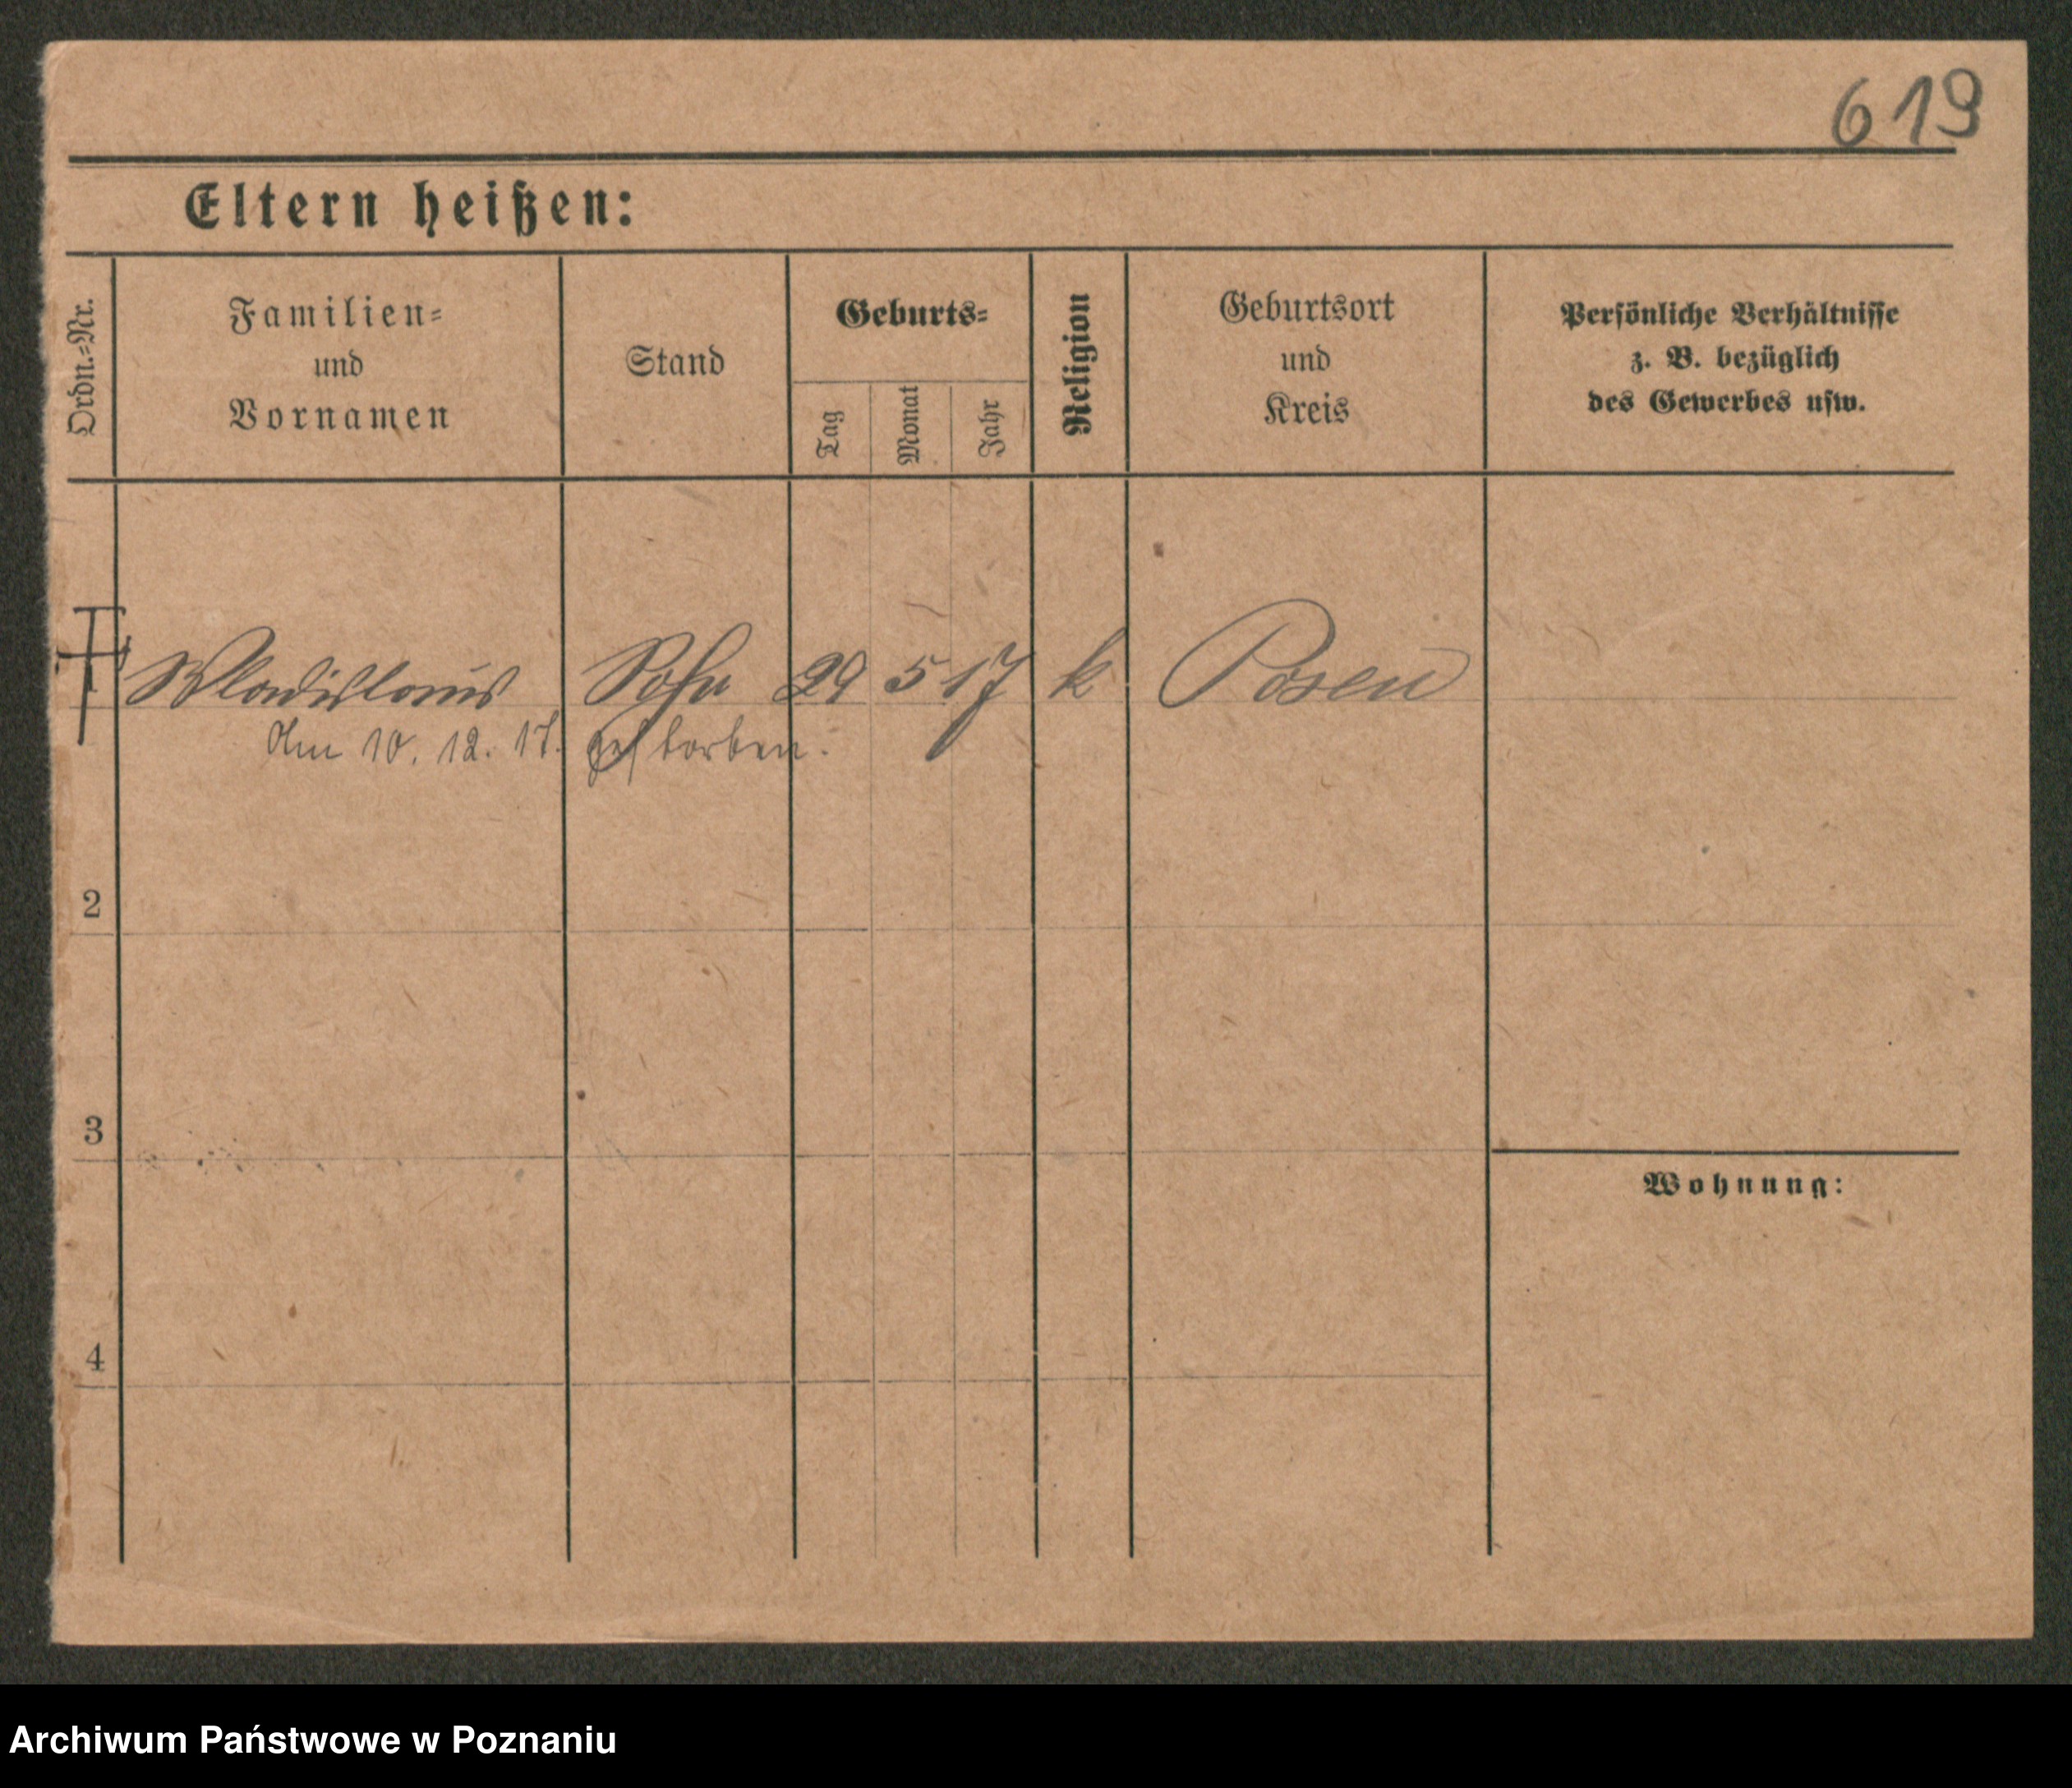 619
Eltern heißen:
Ordn.=Nr.
Familien=
und
Vornamen
Stand
Geburts=
Tag
Monat
Jahr
Religion
Geburtsort
und
Kreis
Persönliche Verhältnisse
z. B. bezüglich
des Gewerbes usw.
Wladislaus Sohn 29 5 17 k Posen
Am 10. 12. 17. gestorben.
2
3
Wohnung:
4
Archiwum Państwowe w Poznaniu